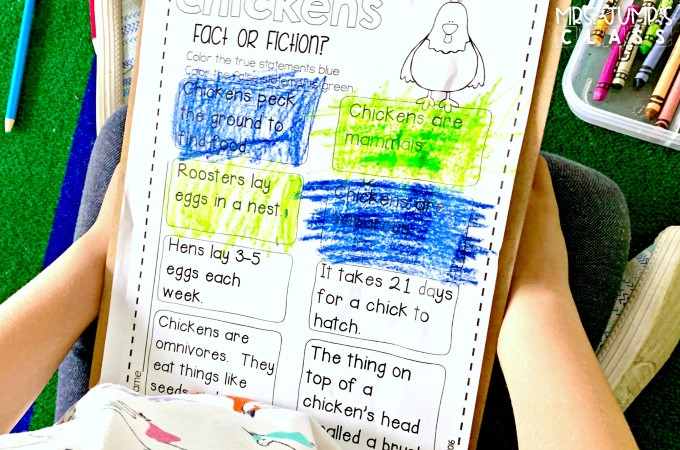 Chickens
FACT OR FICTION?
Color the true statements blue
Color the false statements green.
Chickens peck
the ground to
find food.
Chickens are
mammals.
Roosters lay
eggs in a nest.
Chickens are
Hens lay 3-5
eggs each
week.
It takes 21 days
for a chick to
hatch.
Chickens are
omnivores. They
eat things like
seeds
The thing on
top of a
chicken's head
called a
MRS. JUMP'S
CLASS